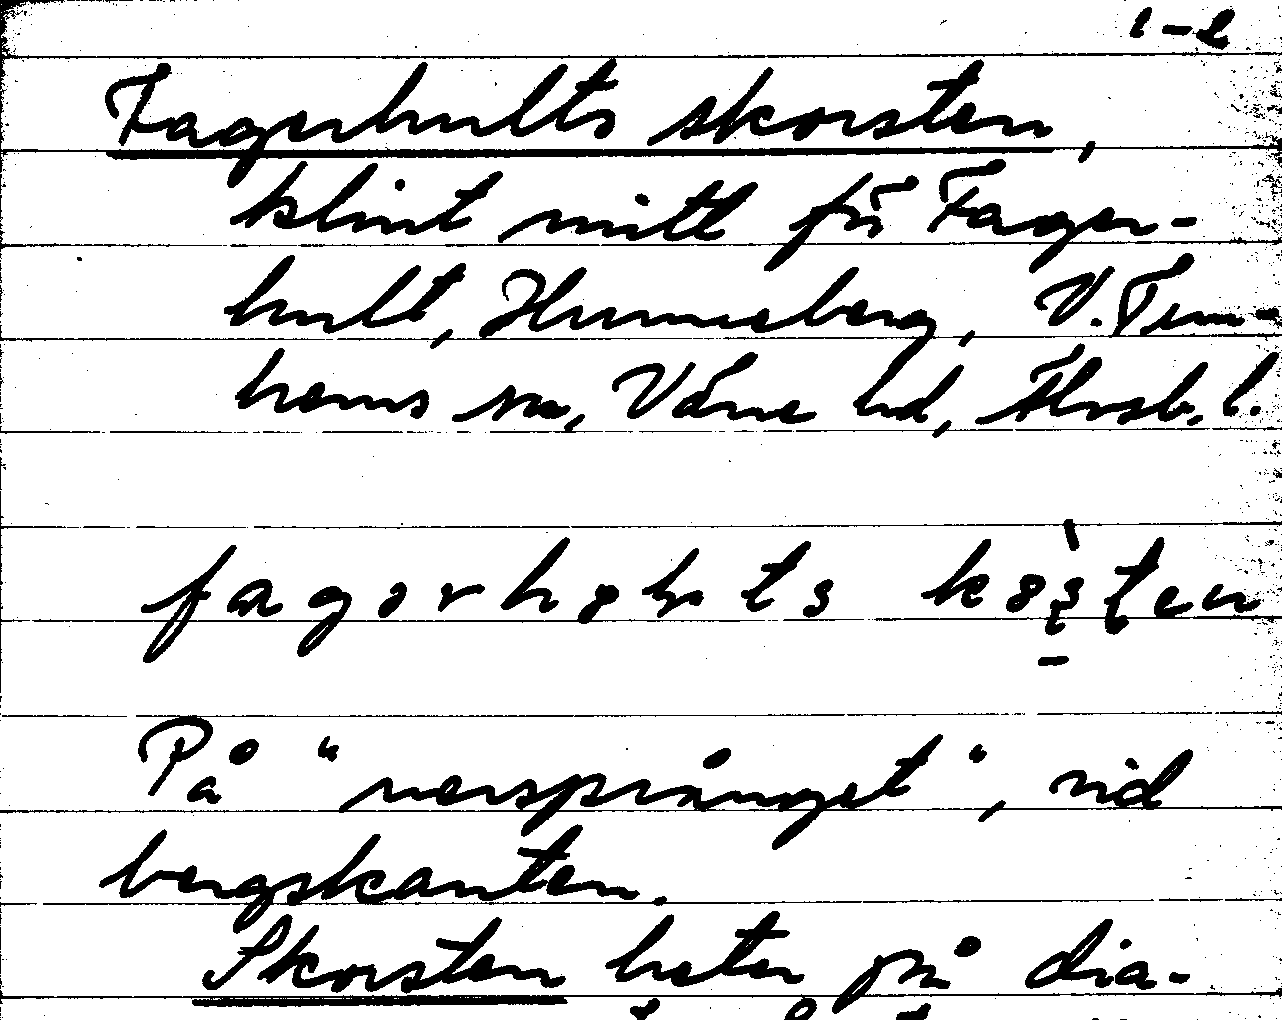 1-2
Fagerhults skorsten,
klint mitt för Fager-
hult, Hunneberg, V. Tun-
hems sn, Väne hd, Älvsb. l.
På "nersprånget", vid
bergskanten.
Skorsten heter på dia-